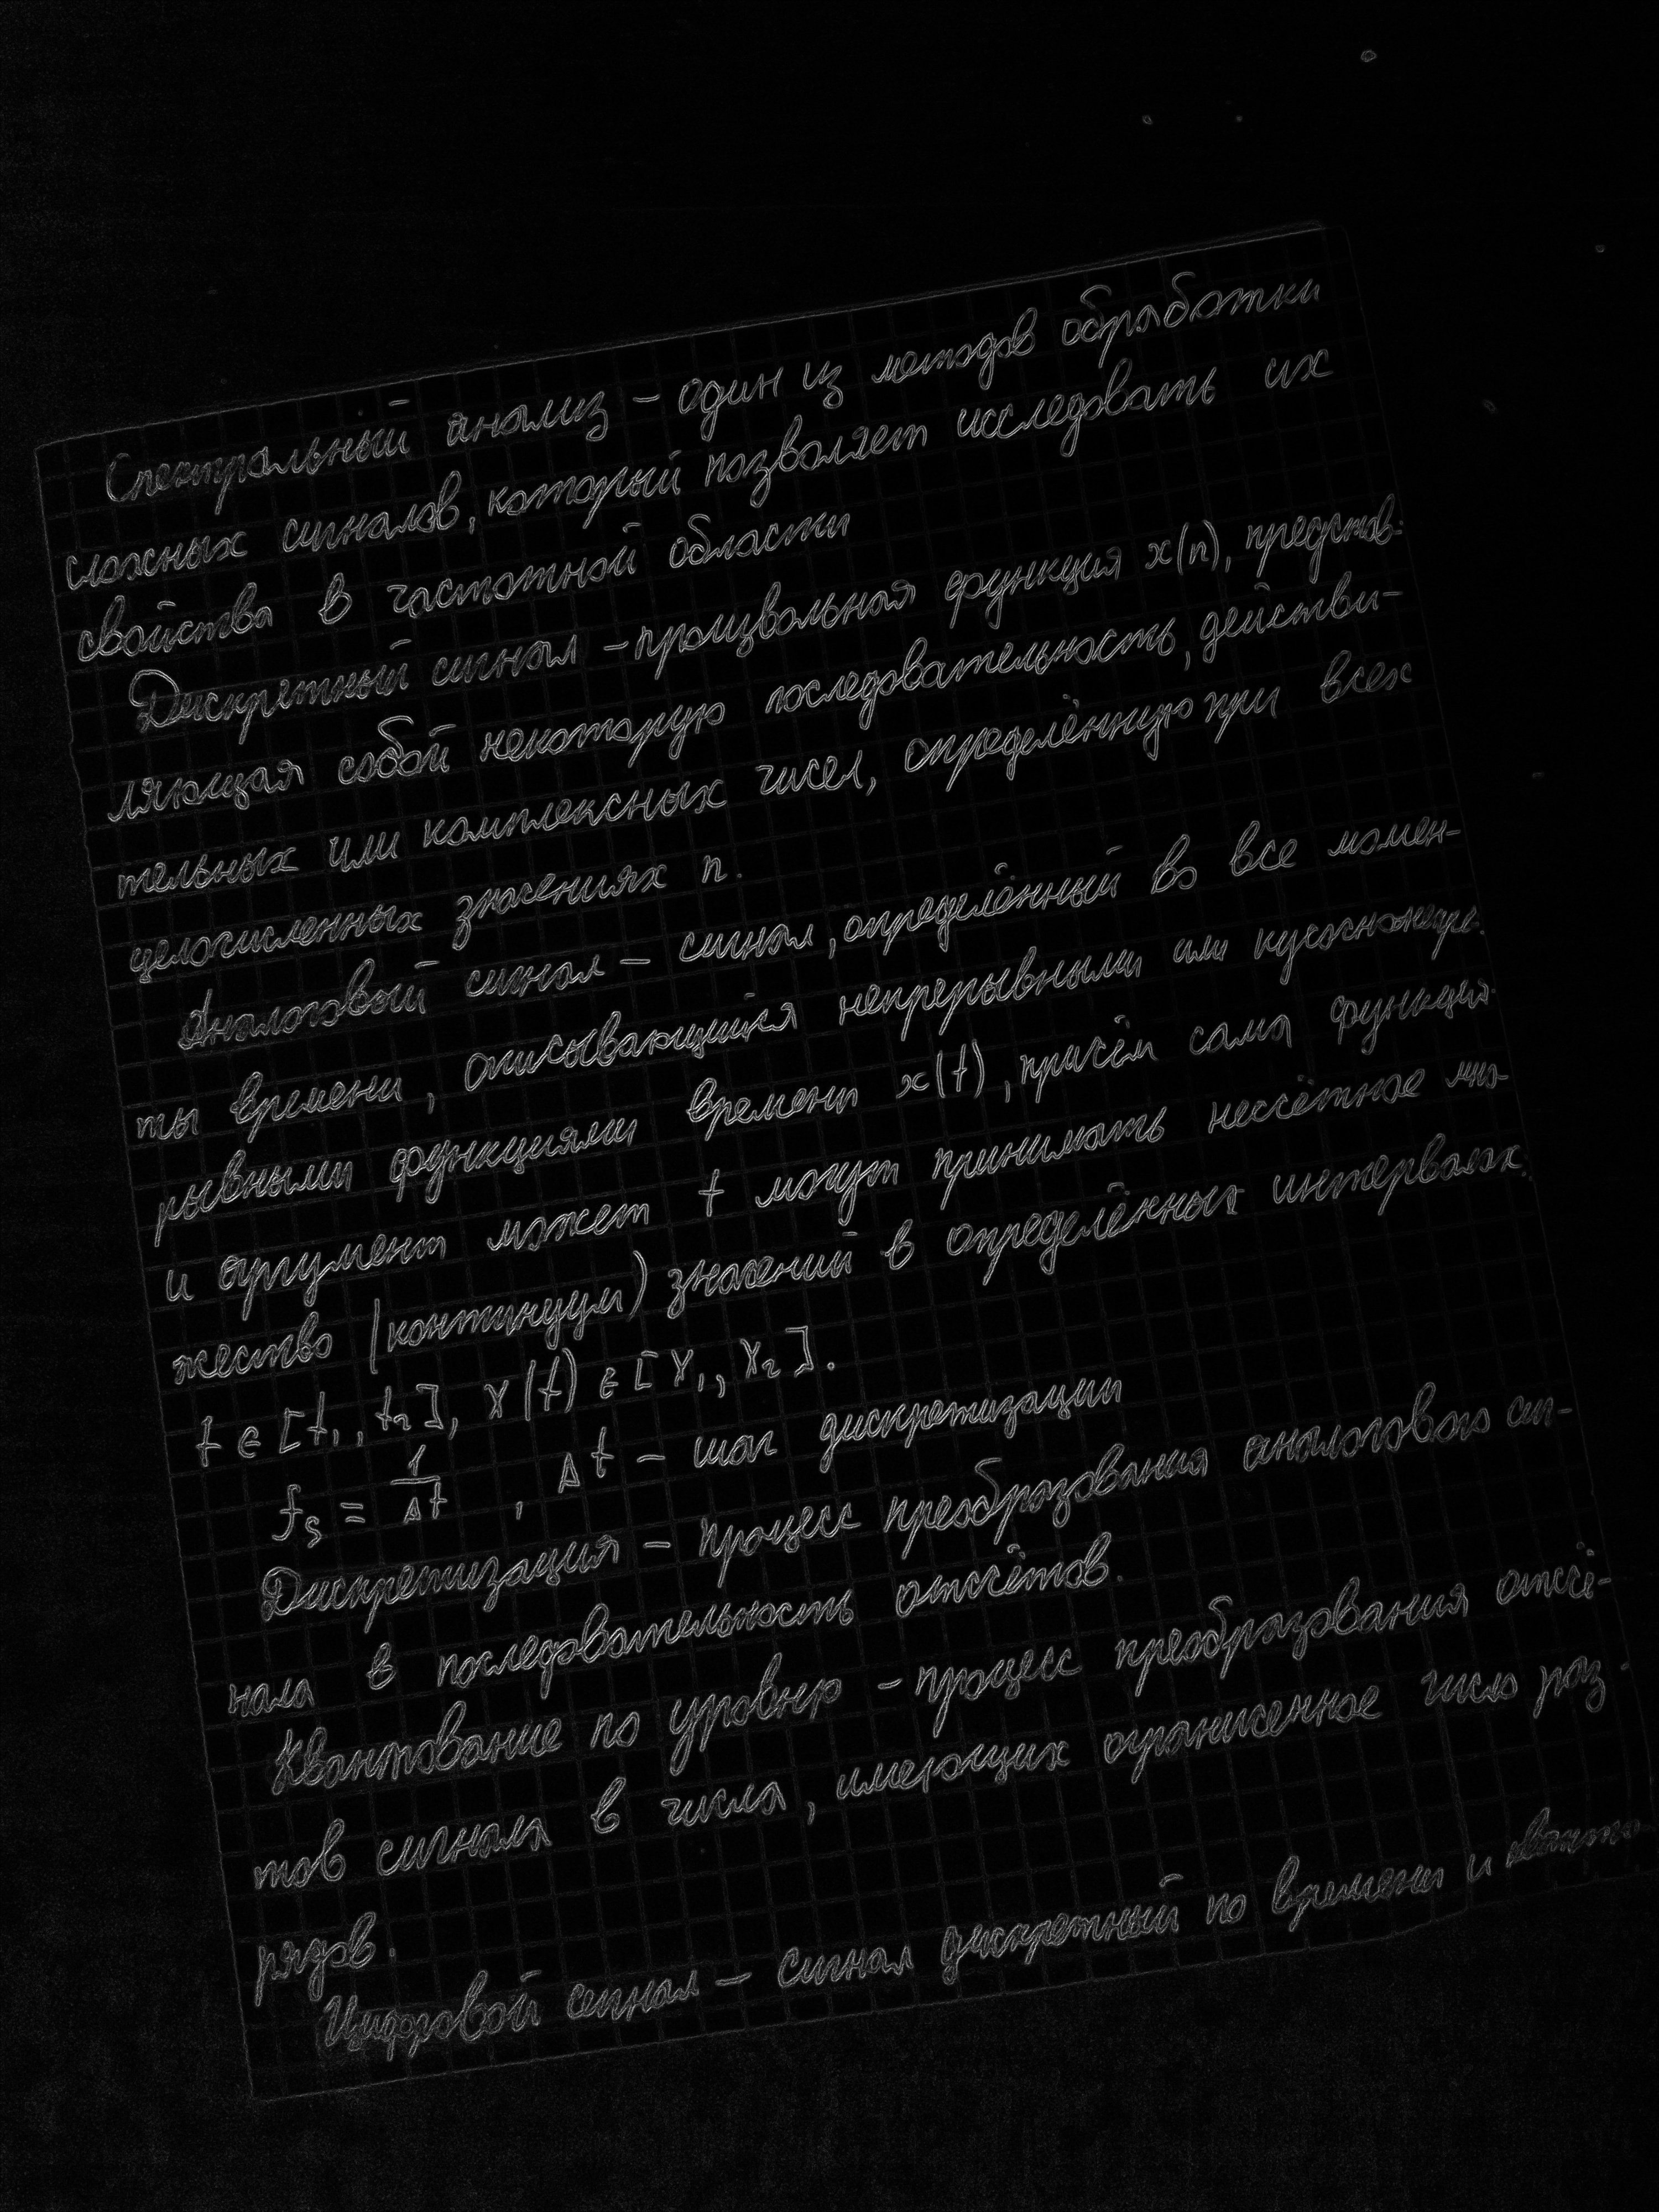 Спектральный анализ – один из методов обработки
сложных сигналов, который позволяет исследовать их
свойства в частотной области
Дискретный сигнал – произвольная функция x(n), представ-
ляющая собой некоторую последовательность, действи-
тельных или комплексных чисел, определённую при всех
целочисленных значениях n.
Аналоговый сигнал – сигнал, определённый во все момен-
ты времени, описывающийся непрерывными или кусочнонепре-
рывными функциями времени x(t), причём сама функция
и аргумент может t могут принимать несчётное мно-
жество (континуум) значений в определённых интервалах.
t ∈ [t₁, t₂], x(t) ∈ [x₁, x₂].
fs = 1/Δt , Δt – шаг дискретизации
Дискретизация – процесс преобразования аналогового сиг-
нала в последовательность отсчётов.
Квантование по уровню – процесс преобразования отсчё-
тов сигнала в числа, имеющих ограниченное число раз-
рядов.
Цифровой сигнал – сигнал дискретный по времени и кванто